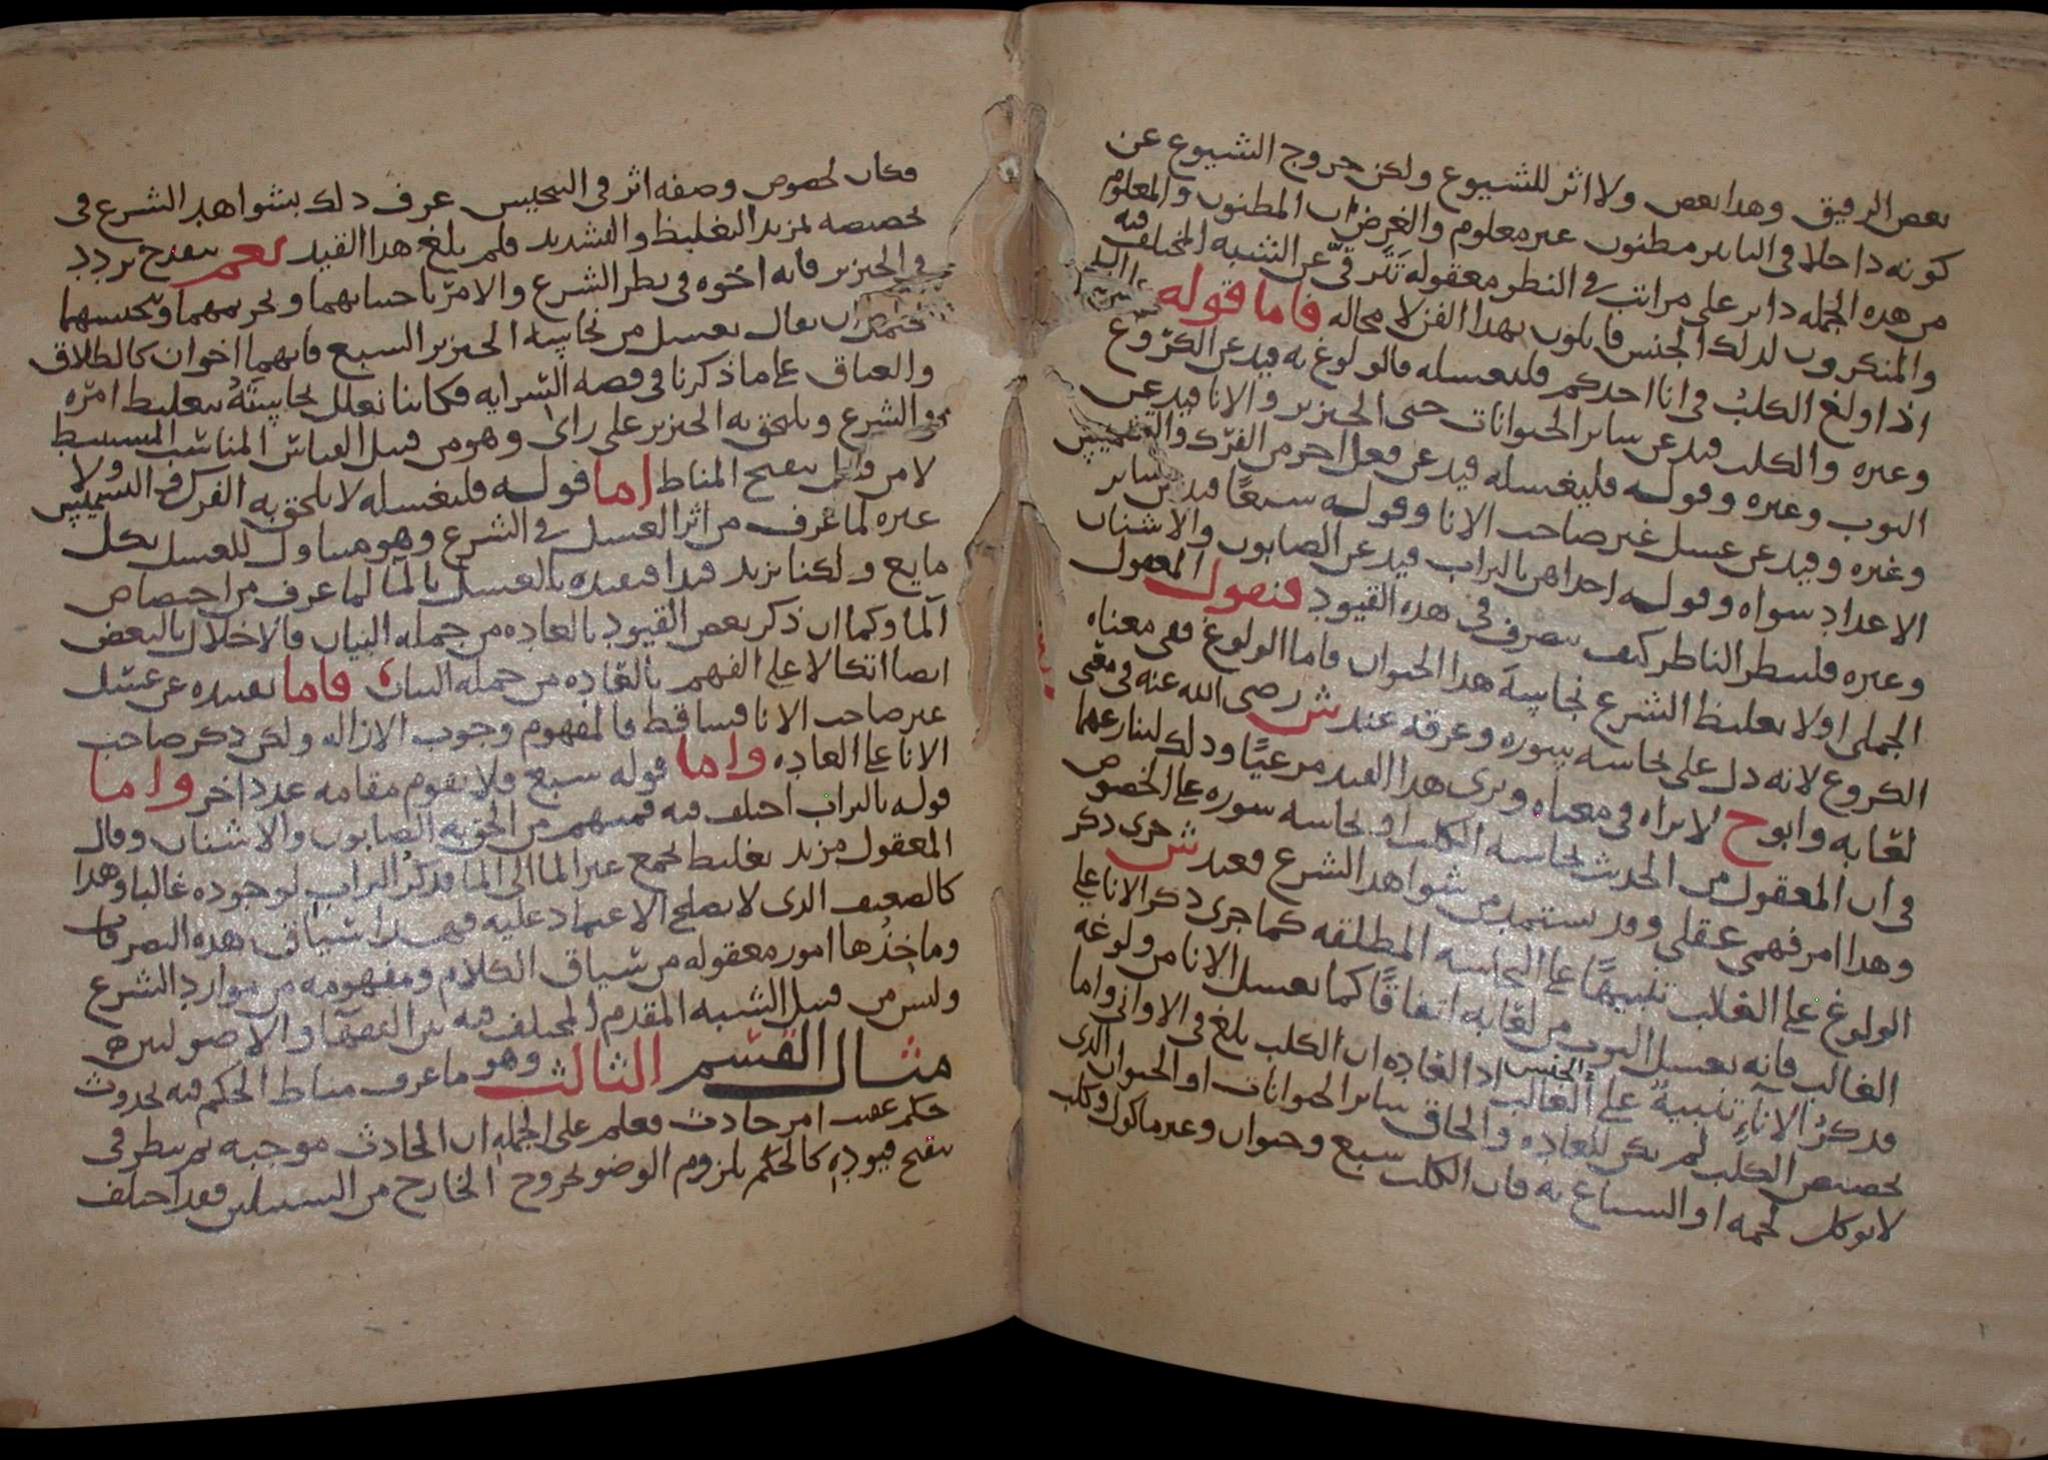 بعض الرقيق وهذا بعض ولا اثر للشيوع ولكن خروج الشيوع عن
كونه داخلا في التاثير مظنون غير معلوم والغرض ان المظنون والمعلوم
من هذه الجمله داير على مراتب في النظر معقوله تترقى عن الشبه المختلف فيه
والمنكرون لذلك الجنس قايلون بهذا الفن لا محاله فاما قوله
اذا ولغ الكلب في انا احدكم فليغسله فالولوغ به قيد عن الكروع
وغيره والكلب قيد عن ساير الحيوانات حتى الخنزير والانا قيد عن
الثوب وغيره وقوله فليغسله قيد عن فعل اخر من الفرك والتشميس
وغيره وقيد عن غسل غير صاحب الانا وقوله سبعا قيد عن ساير
الاعداد سواه وقوله احداهن بالتراب قيد عن الصابون والاشنان
وغيره فلينظر الناظر كيف يتصرف في هذه القيود فنقول المعقول
الجملي اولا تغليظ الشرع نجاسة هذا الحيوان فاما الولوغ ففي معناه
الكروع لانه دل على نجاسه سوره وعرقه عند ش رضي الله عنه في معنى
لعابه وابو ح لا يراه في معناه ويرى هذا القيد مرعيا وذلك لتنازعهما
في ان المعقول من الحدث نجاسه الكلب او نجاسه سوره على الخصوص
وهذا امر فهمي عقلي وقد يستمد من شواهد الشرع فعند ش جرى ذكر
الولوغ على الغالب تنبيها على النجاسه المطلقه كما جرى ذكر الانا على
الغالب فانه يغسل الثوب من لعابه اتفاقا كما يغسل الانا من ولوغه
فذكر الاناء تنبيه على الجنس الغالب اذ العاده ان الكلب يلغ في الاواني واما
تخصيص الكلب لم يكن للعاده والحاق ساير الحيوانات او الحيوان الذي
لا يوكل لحمه او السباع به فان الكلب سبع وحيوان وغير ماكول وكلب
فكان لخصوص وصفه اثر في التنجيس عرف ذلك بشواهد الشرع في
تخصيصه لمزيد التغليظ والتشديد فلم يلغ هذا القيد نعم ينقدح تردد
في الخنزير فانه اخوه في نظر الشرع والامر باجتنابهما وتحريمهما وتنجيسهما
فيحتمل ان يقال يغسل من نجاسة الخنزير السبع فانهما اخوان كالطلاق
والعتاق على ما ذكرنا في قصه السرايه فكاننا نعلل نجاسته بتغليظ امره
في الشرع ويلتحق به الخنزير على راي وهو من قبيل القياس المناسب المستنبط
لا من قبيل تنقيح المناط اما قوله فليغسله لا يلتحق به الفرك والتشميس ولا
غيره لما عرف من اثر الغسل في الشرع وهو متناول للغسل بكل
مايع ولكنا نزيد قيدا فنقيده بالغسل بالما لما عرف من اختصاص
الما وكما ان ذكر بعض القيود بالعاده من جمله البيان فالاخلال بالبعض
ايضا اتكالا على الفهم بالعاده من جمله البيان فاما تقييده عن غسل
غير صاحب الانا فساقط فالمفهوم وجوب الازاله ولكن ذكر صاحب
الانا على العاده واما قوله سبع فلا يقوم مقامه عدد اخر واما
قوله بالتراب اختلف فيه فمنهم من الحق به الصابون والاشنان وقال
المعقول مزيد تغليظ بجمع غير الما الى الما فذكر التراب لوجوده غالبا وهذا
كالضعيف الذي لا يصلح الاعتماد عليه فهذا سياق هذه التصرفات
وماخذها امور معقوله من سياق الكلام ومفهومه من موارد الشرع
وليس من قبيل الشبه المقدم المختلف فيه بين الفقها والاصوليين
مثال القسم الثالث وهو ما عرف مناط الحكم فيه بحدوث
حكم عقيب امر حادث فعلم على الجمله ان الحادث موجبه ثم ينظر في
تنقيح قيوده كالحكم بلزوم الوضو بخروج الخارج من السبيلين فقد اختلف